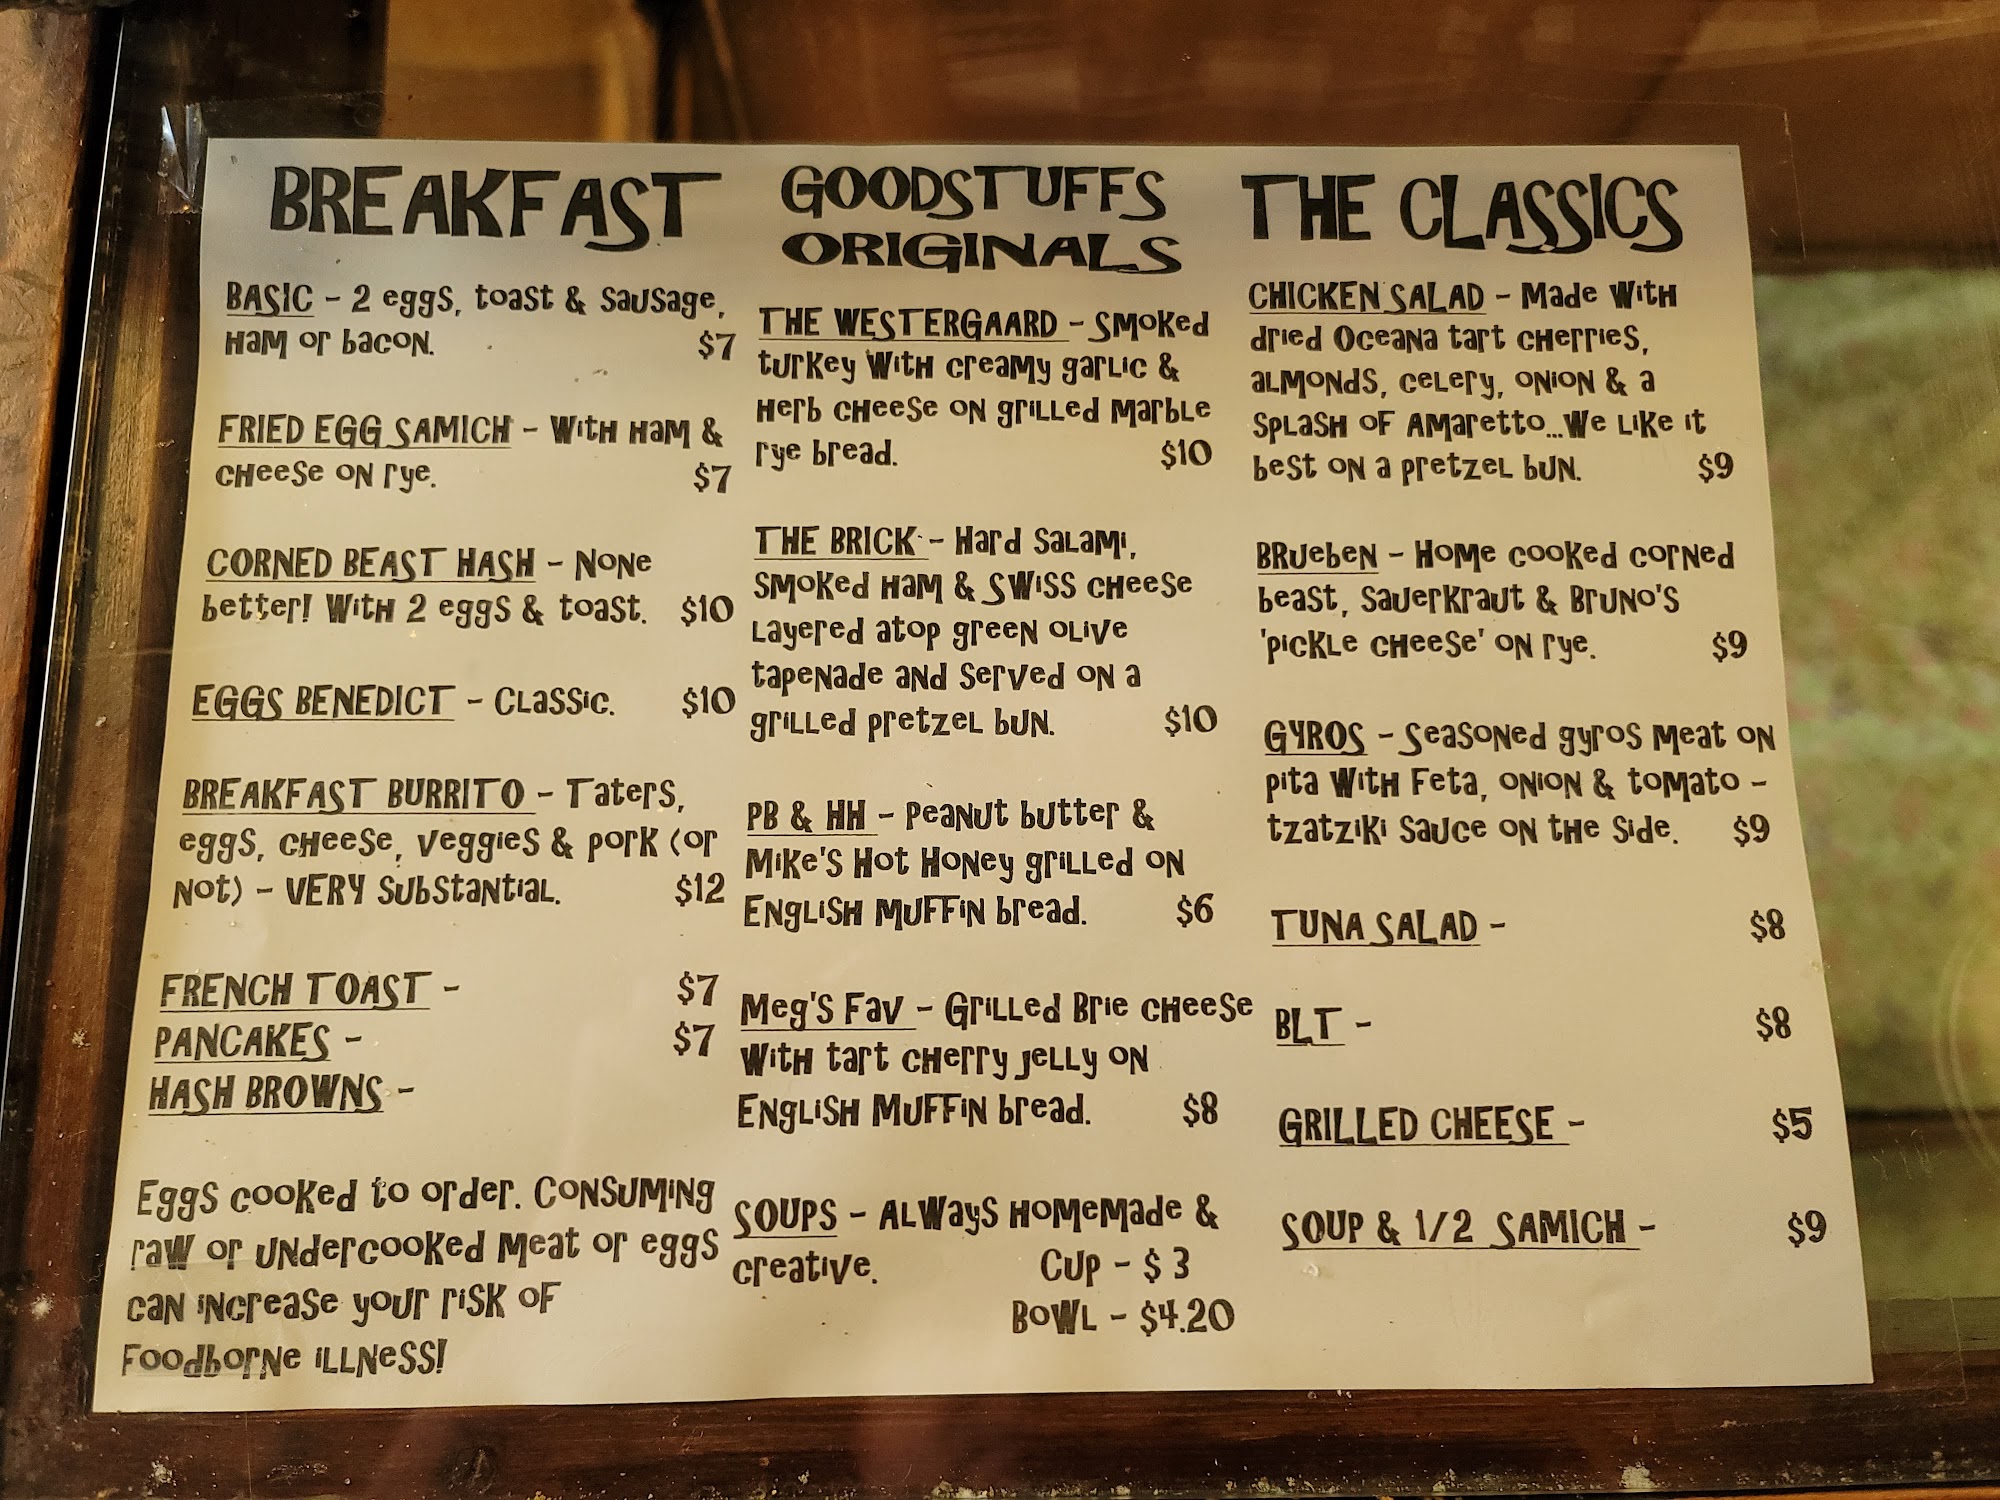 BREAKFAST
BASIC - 2 eggs, toast & sausage,
ham or bacon. $7
FRIED EGG SAMICH - With ham &
cheese on rye. $7
CORNED BEAST HASH - None
better! With 2 eggs & toast. $10
EGGS BENEDICT - Classic. $10
BREAKFAST BURRITO - Taters,
eggs, cheese, veggies & pork (or
not) - VERY substantial. $12
FRENCH TOAST - $7
PANCAKES - $7
HASH BROWNS -
Eggs cooked to order. Consuming
raw or undercooked meat or eggs
can increase your risk of
foodborne illness!
GOODSTUFFS
ORIGINALS
THE WESTERGAARD - Smoked
turkey with creamy garlic &
herb cheese on grilled marble
rye bread. $10
THE BRICK - Hard salami,
smoked ham & Swiss cheese
layered atop green olive
tapenade and served on a
grilled pretzel bun. $10
PB & HH - Peanut butter &
Mike's Hot Honey grilled on
English muffin bread. $6
Meg's Fav - Grilled Brie cheese
with tart cherry jelly on
English muffin bread. $8
SOUPS - Always homemade &
creative. Cup - $ 3
Bowl - $4.20
THE CLASSICS
CHICKEN SALAD - Made with
dried Oceana tart cherries,
almonds, celery, onion & a
splash of Amaretto...We like it
best on a pretzel bun. $9
BRUEBEN - Home cooked corned
beast, sauerkraut & Bruno's
'pickle cheese' on rye. $9
GYROS - Seasoned gyros meat on
pita with feta, onion & tomato -
tzatziki sauce on the side. $9
TUNA SALAD - $8
BLT - $8
GRILLED CHEESE - $5
SOUP & 1/2 SAMICH - $9